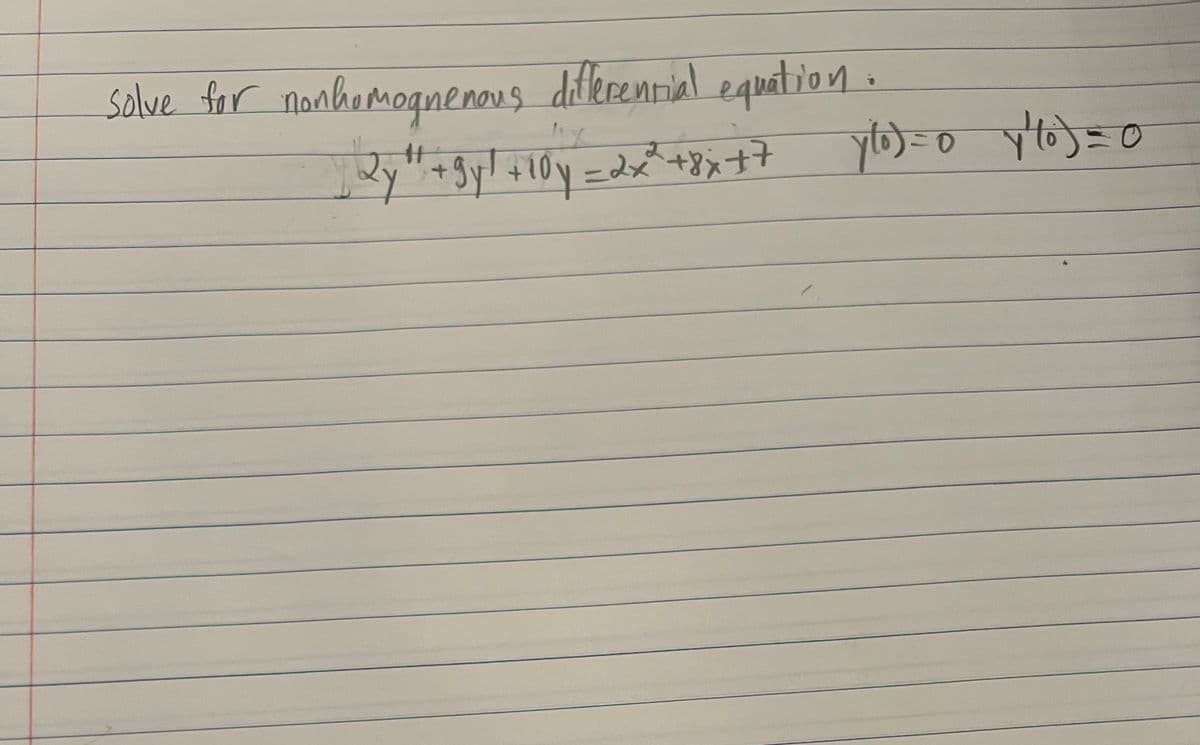 solve for nonhomognenous differenrial equation.
2y" + 9y' + 10y = 2x² + 8x + 7 y(0) = 0 y'(0) = 0